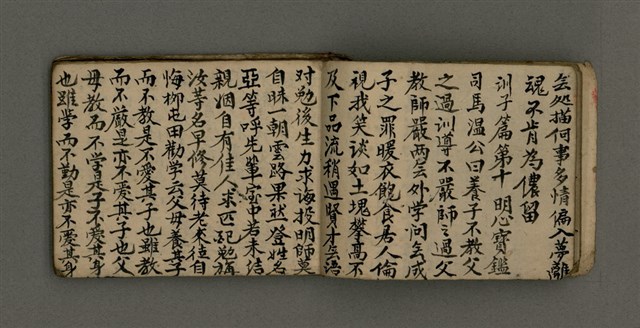 去处描何事多情偏入夢難
魂不肯為儂留
訓子篇第十 明心寶鑑
司馬温公曰養子不教父
之過訓導不嚴師之過父
教師嚴兩無外学问無成
子之罪暖衣飽食居人倫
視我笑谈如土塊攀高不
及下品流稍遇賢才無语
对勉後生力求诲投明師莫
自昧一朝雲路果状登姓名
亞等呼先輩室中若未结
親姻自有佳人求匹配勉旃
汝等各早修莫待老来徒自
悔柳屯田勸学云父母養其子
而不教是不愛其子也雖教
而不嚴是亦不愛其子也父
母教而不学是子不愛其身
也雖学而不勤是亦不愛其身